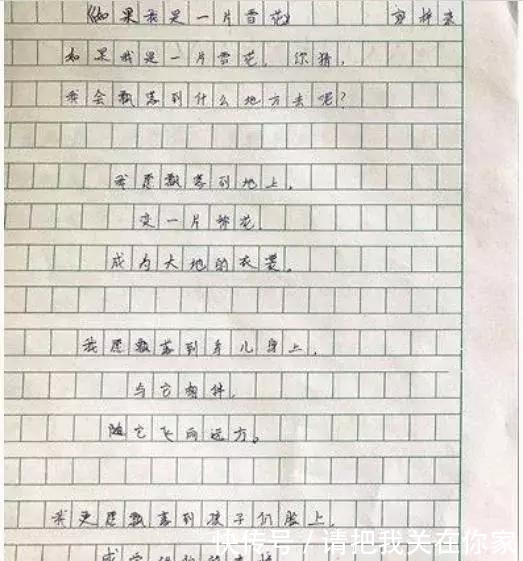 《如果我是一片雪花》
如果我是一片雪花，你猜，
我会飘落到什么地方去呢？
我愿飘落到地上，
变一片棉花，
成为大地的衣裳。
我愿飘落到鸟儿身上，
与它相伴，
随它飞向远方。
我更愿飘落到孩子们脸上，
快传号/请把我关在你家